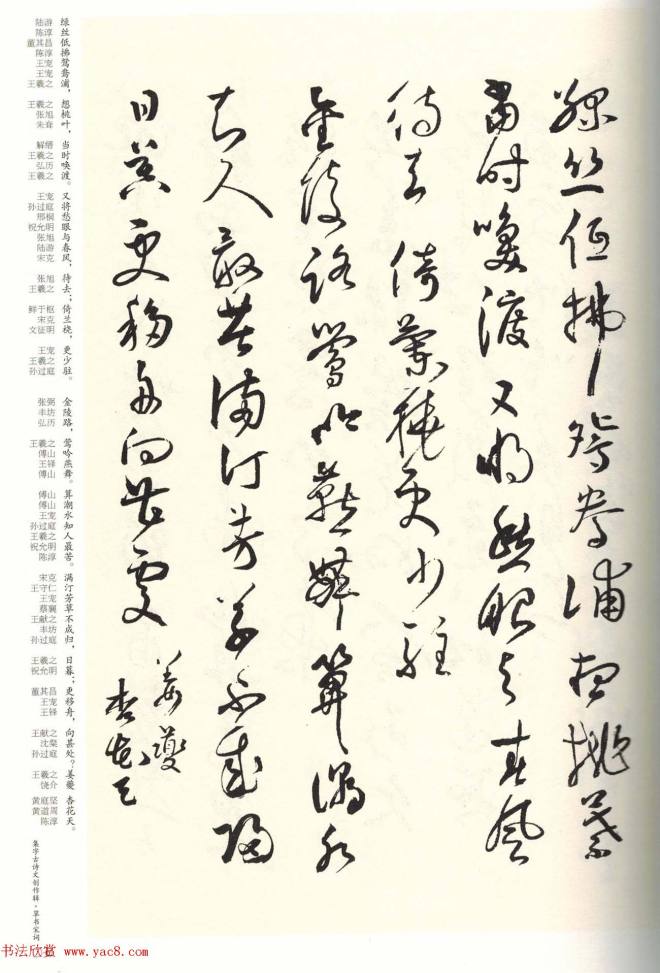 綠絲低拂鴛鴦浦想桃葉
當時喚渡又將愁眼與春風
待去倚蘭橈更少駐
金陵路鶯吟燕舞算潮水
知人最苦滿汀芳草不成歸
日暮更移舟向甚處
姜夔
杏花天
绿丝低拂鸳鸯浦，想桃叶，当时唤渡。又将愁眼与春风；待去；倚兰桡，更少驻。金陵路，莺吟燕舞。算潮水知人最苦。满汀芳草不成归，日暮；更移舟，向甚处？姜夔 杏花天。
陆游 陈淳 董其昌 陈淳 王宠 王宠 王羲之 王羲之 张旭 朱耷 解缙 王羲之 弘历 王羲之 王宠 孙过庭 邢侗 祝允明 张旭 陆游 宋克 张旭 王羲之 鲜于枢 宋克 文征明 王宠 王羲之 孙过庭 张弼 丰坊 弘历 王羲之 傅山 王铎 傅山 傅山 傅山 王宠 孙过庭 王羲之 祝允明 陈淳 宋克 王守仁 王宠 蔡襄 王献之 丰坊 孙过庭 王羲之 祝允明 董其昌 王宠 王铎 王献之 沈粲 孙过庭 王羲之 饶介 黄庭坚 黄道周 陈淳
集字古诗文创作辑·草书宋词
书法欣赏 www.yac8.com